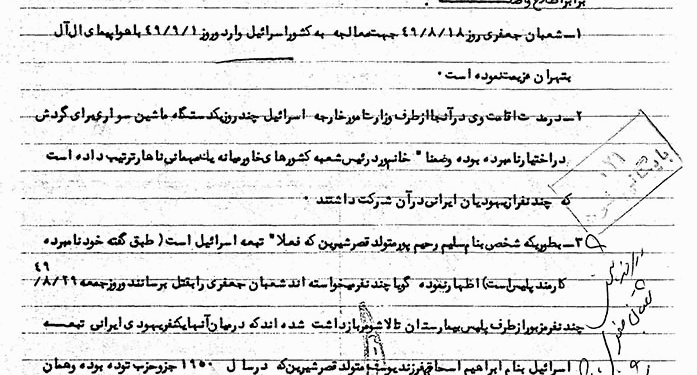 برابر اطلاع واصله
۱- شعبان جعفری روز ۴۹/۸/۱۸ جهت معالجه به کشور اسرائیل وارد و روز ۴۹/۹/۱ با هواپیمای ال آل
بتهران عزیمت نموده است .
۲- در مدت اقامت وی در آنجا از طرف وزارت امور خارجه اسرائیل چند روز یکدستگاه ماشین سواری برای گردش
در اختیار نامبرده بوده وضمنا" خانم ورد رئیس شعبه کشورهای خاورمیانه یک مهمانی ناهار ترتیب داده است
که چند نفر از یهودیان ایرانی در آن شرکت داشتند .
۳- بطوریکه شخص بنام سلیم رحیم پور متولد قصر شیرین که فعلا" تبعه اسرائیل است ( طبق گفته خود نامبرده
کارمند پلیس است ) اظهار نموده گویا چند نفر میخواسته اند شعبان جعفری را بقتل برسانند و روز جمعه ۴۹/۸/۲۹
چند نفر مزبور از طرف پلیس بیمارستان تالاشومر بازداشت شده اند که در میان آنها یکنفر یهودی ایرانی تبعه
اسرائیل بنام ابراهیم اسحاق فرزند یوسف متولد قصر شیرین که در سال ۱۹۵۰ جزو حزب توده بوده و همان
بایگانی